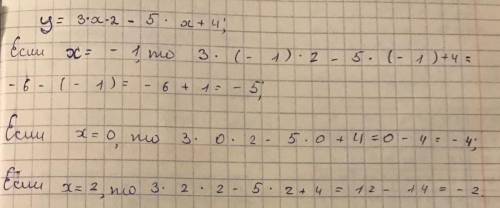 y = 3·x·2 - 5 · x + 4;
Если x = - 1, то 3 · (- 1) · 2 - 5 · (- 1) + 4 =
- 6 - (- 1) = - 6 + 1 = - 5;
Если x = 0, то 3 · 0 · 2 - 5 · 0 + 4 = 0 - 4 = - 4;
Если x = 2, то 3 · 2 · 2 - 5 · 2 + 4 = 12 - 14 = - 2.